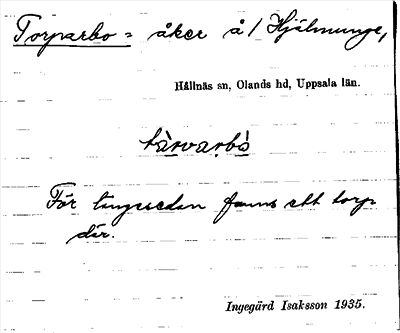 Torparbo = åker å/ Hjälmunge,
Hållnäs sn, Olands hd, Uppsala län.
tàrvarbò
För länge sedan fanns ett torp
där.
Ingegärd Isaksson 1935.